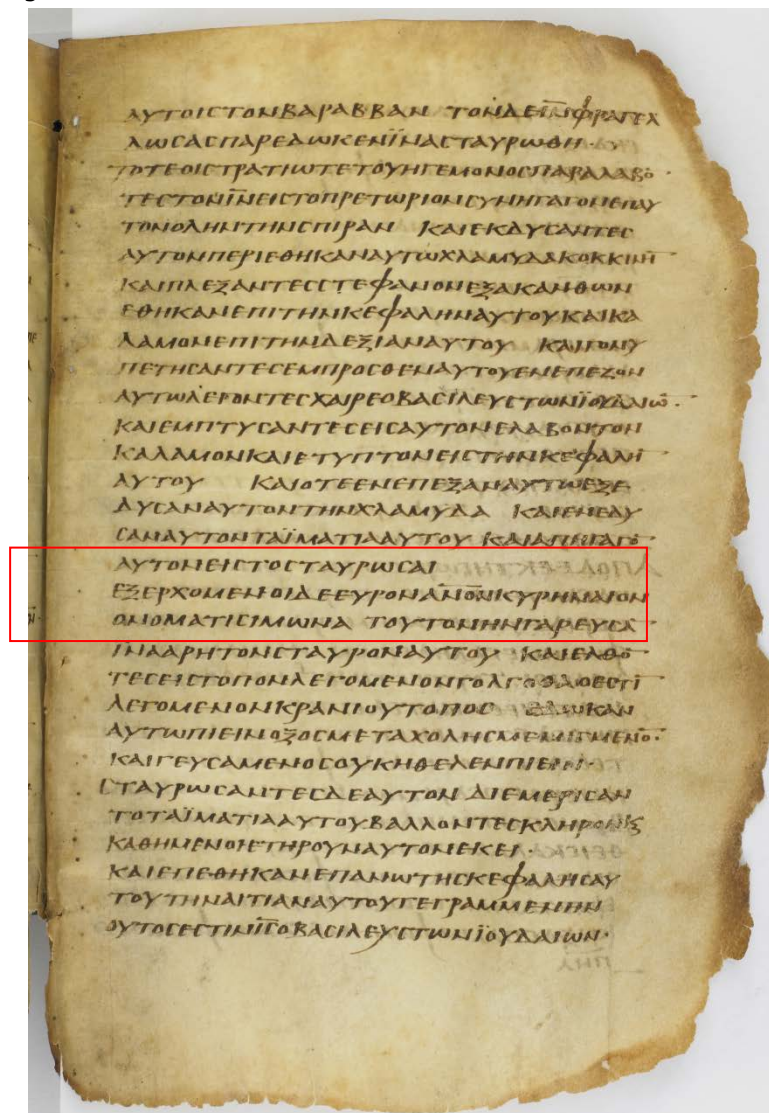 ΑΥΤΟΙϹΤΟΝΒΑΡΑΒΒΑΝ ΤΟΝΔΕΙ̅Ν̅ΦΡΑΓΕΛ
ΛΩϹΑϹΠΑΡΕΔΩΚΕΝΪΝΑϹΤΑΥΡΩΘΗ·
ΤΟΤΕΟΙϹΤΡΑΤΙΩΤΕΤΟΥΗΓΕΜΟΝΟϹΠΑΡΑΛΑΒΟ̅
ΤΕϹΤΟΝΙ̅Ν̅ΕΙϹΤΟΠΡΕΤΩΡΙΟΝϹΥΝΗΓΑΓΟΝΕΠΑΥ
ΤΟΝΟΛΗΝΤΗΝϹΠΙΡΑΝ ΚΑΙΕΚΔΥϹΑΝΤΕϹ
ΑΥΤΟΝΠΕΡΙΕΘΗΚΑΝΑΥΤΩΧΛΑΜΥΔΑΚΟΚΚΙΝΗ̅
ΚΑΙΠΛΕΞΑΝΤΕϹϹΤΕΦΑΝΟΝΕΞΑΚΑΝΘΩΝ
ΕΘΗΚΑΝΕΠΙΤΗΝΚΕΦΑΛΗΝΑΥΤΟΥΚΑΙΚΑ
ΛΑΜΟΝΕΠΙΤΗΝΔΕΞΙΑΝΑΥΤΟΥ ΚΑΙΓΟΝΥ
ΠΕΤΗϹΑΝΤΕϹΕΜΠΡΟϹΘΕΝΑΥΤΟΥΕΝΕΠΕΖΟΝ
ΑΥΤΩΛΕΓΟΝΤΕϹΧΑΙΡΕΟΒΑϹΙΛΕΥϹΤΩΝΪΟΥΔΑΙΩ̅·
ΚΑΙΕΜΠΤΥϹΑΝΤΕϹΕΙϹΑΥΤΟΝΕΛΑΒΟΝΤΟΝ
ΚΑΛΑΜΟΝΚΑΙΕΤΥΠΤΟΝΕΙϹΤΗΝΚΕΦΑΛΗ̅
ΑΥΤΟΥ ΚΑΙΟΤΕΕΝΕΠΕΞΑΝΑΥΤΩΕΞΕ
ΔΥϹΑΝΑΥΤΟΝΤΗΝΧΛΑΜΥΔΑ ΚΑΙΕΝΕΔΥ
ϹΑΝΑΥΤΟΝΤΑΪΜΑΤΙΑΑΥΤΟΥ ΚΑΙΑΠΗΓΑΓΟ̅
ΑΥΤΟΝΕΙϹΤΟϹΤΑΥΡΩϹΑΙ
ΕΞΕΡΧΟΜΕΝΟΙΔΕΕΥΡΟΝΑ̅Ν̅Ο̅Ν̅ΚΥΡΗΝΑΙΟΝ
ΟΝΟΜΑΤΙϹΙΜΩΝΑ ΤΟΥΤΟΝΗΝΓΑΡΕΥϹΑ̅
ΪΝΑΑΡΗΤΟΝϹΤΑΥΡΟΝΑΥΤΟΥ ΚΑΙΕΛΘΟ̅
ΤΕϹΕΙϹΤΟΠΟΝΛΕΓΟΜΕΝΟΝΓΟΛΓΟΘΑΟΕϹΤΙ̅
ΛΕΓΟΜΕΝΟΝΚΡΑΝΙΟΥΤΟΠΟϹ ΕΔΩΚΑΝ
ΑΥΤΩΠΙΕΙΝΟΞΟϹΜΕΤΑΧΟΛΗϹΜΕΜΙΓΜΕΝΟ̅·
ΚΑΙΓΕΥϹΑΜΕΝΟϹΟΥΚΗΘΕΛΕΝΠΙΕΙΝ·
ϹΤΑΥΡΩϹΑΝΤΕϹΔΕΑΥΤΟΝ ΔΙΕΜΕΡΙϹΑΝ
ΤΟΤΑΪΜΑΤΙΑΑΥΤΟΥΒΑΛΛΟΝΤΕϹΚΛΗΡΟΝϏ
ΚΑΘΗΜΕΝΟΙΕΤΗΡΟΥΝΑΥΤΟΝΕΚΕΙ·
ΚΑΙΕΠΕΘΗΚΑΝΕΠΑΝΩΤΗϹΚΕΦΑΛΗϹΑΥ
ΤΟΥΤΗΝΑΙΤΙΑΝΑΥΤΟΥΓΕΓΡΑΜΜΕΝΗΝ
ΟΥΤΟϹΕϹΤΙΝΙ̅Ϲ̅ΟΒΑϹΙΛΕΥϹΤΩΝΪΟΥΔΑΙΩΝ·